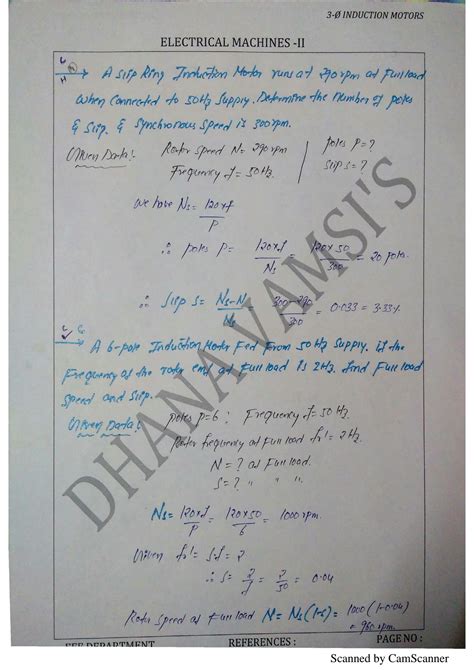 3-Ø INDUCTION MOTORS
ELECTRICAL MACHINES -II
→ A Slip Ring Induction Motor runs at 290 rpm at Full load
when Connected to 50Hz Supply. Determine the Number of poles
& Slip. & Synchronous Speed is 300rpm.
Given Data:- Rotor Speed N = 290rpm | Poles P=?
Frequency f = 50Hz. | Slip S=?
We have Ns = 120xf / P
∴ Poles P = 120xf / Ns = 120x50 / 300 = 20 poles.
∴ Slip S = Ns-N / Ns = 300-290 / 300 = 0.033 = 3.33%.
→ A 6-pole Induction Motor Fed From 50Hz Supply. if the
Frequency of the rotor emf at Full load is 2Hz. find Full load
Speed and Slip.
Given Data:- Poles P=6 ; Frequency f = 50 Hz.
Rotor frequency at Full load fr' = 2Hz.
N = ? at Full load.
S = ? " " "
Ns = 120xf / P = 120x50 / 6 = 1000 rpm.
Given fr' = S.f = 2
∴ S = 2 / f = 2 / 50 = 0.04
Rotor Speed at Full load N = Ns(1-S) = 1000(1-0.04)
= 960 rpm.
EEE DEPARTMENT REFERENCES : PAGE NO :
DHANAVAMSI'S
Scanned by CamScanner